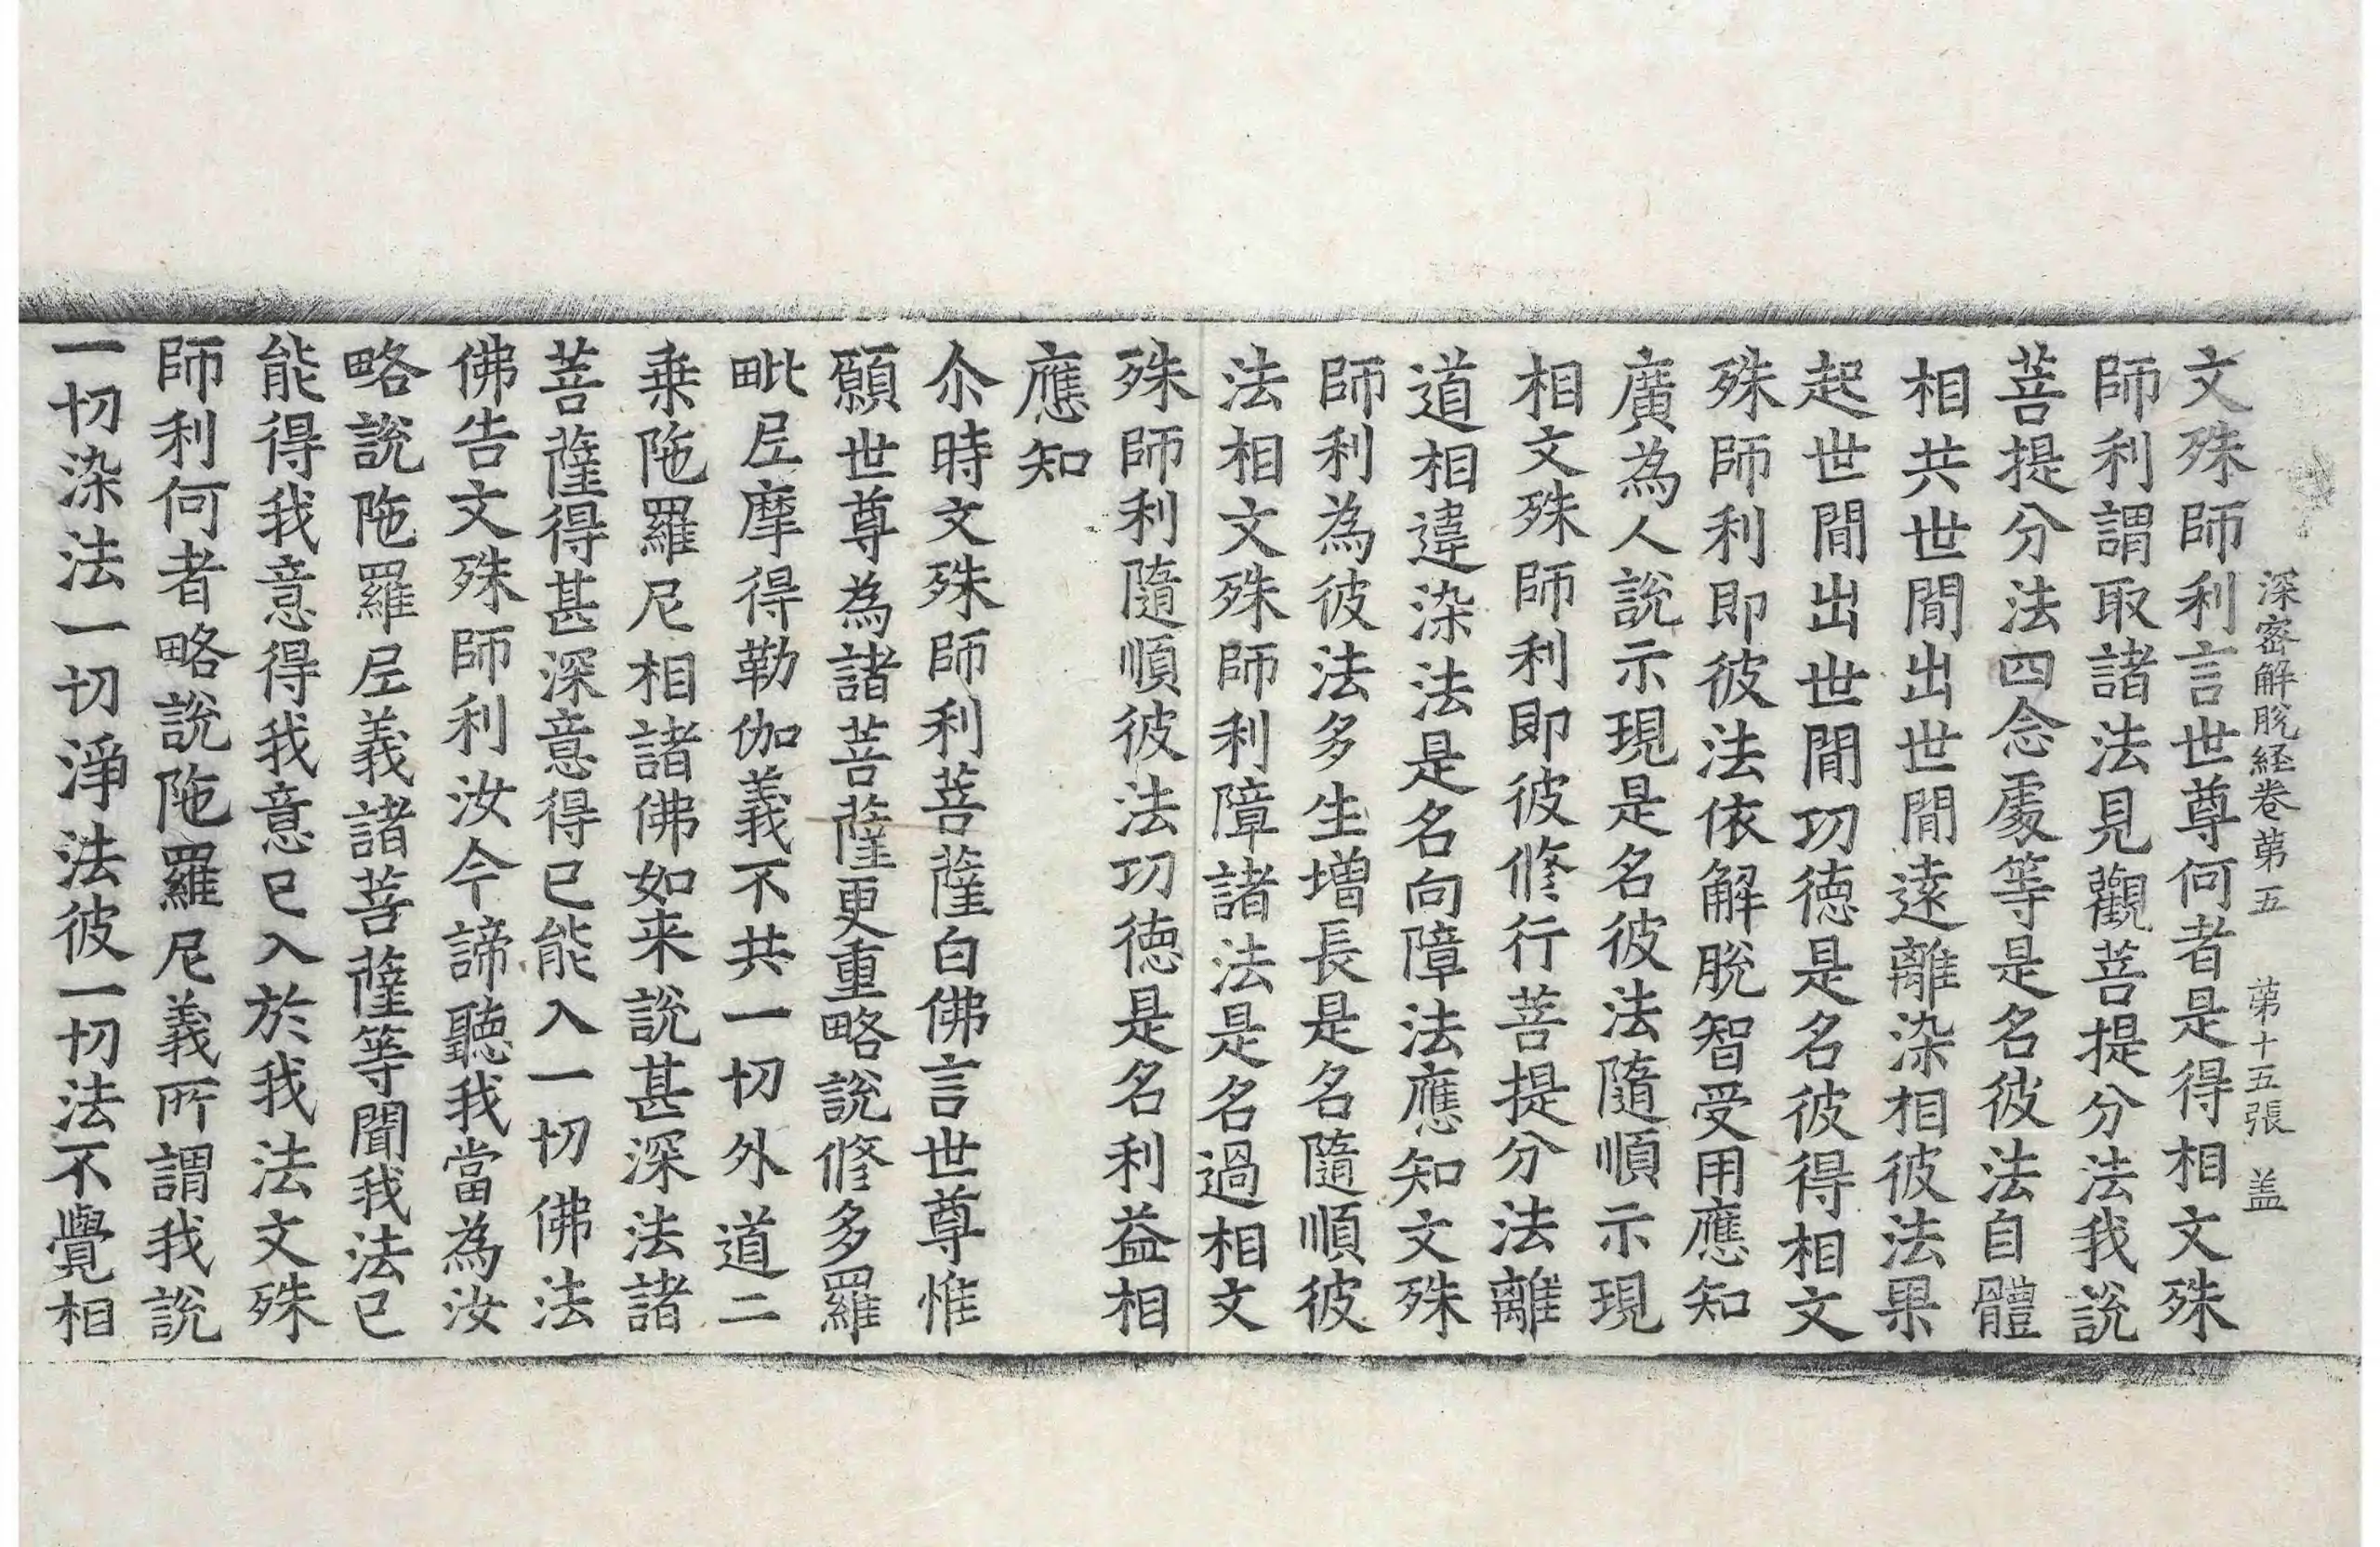 深密解脫経卷第五　第十五張　盖
文殊師利言世尊何者是得相文殊
師利謂取諸法見觀菩提分法我說
菩提分法四念處等是名彼法自體
相共世間出世間遠離染相彼法果
起世間出世間功德是名彼得相文
殊師利即彼法依解脫智受用應知
廣為人說示現是名彼法隨順示現
相文殊師利即彼修行菩提分法離
道相違染法是名向障法應知文殊
師利為彼法多生增長是名隨順彼
法相文殊師利障諸法是名過相文
殊師利隨順彼法功德是名利益相
應知
尒時文殊師利菩薩白佛言世尊惟
願世尊為諸菩薩更重略說修多羅
毗𡰱摩得勒伽義不共一切外道二
乗陁羅尼相諸佛如来說甚深法諸
菩薩得甚深意得已能入一切佛法
佛告文殊師利汝今諦聽我當為汝
略說陁羅𡰱義諸菩薩等聞我法已
能得我意得我意已入於我法文殊
師利何者略說陁羅尼義所謂我說
一切染法一切淨法彼一切法不覺相